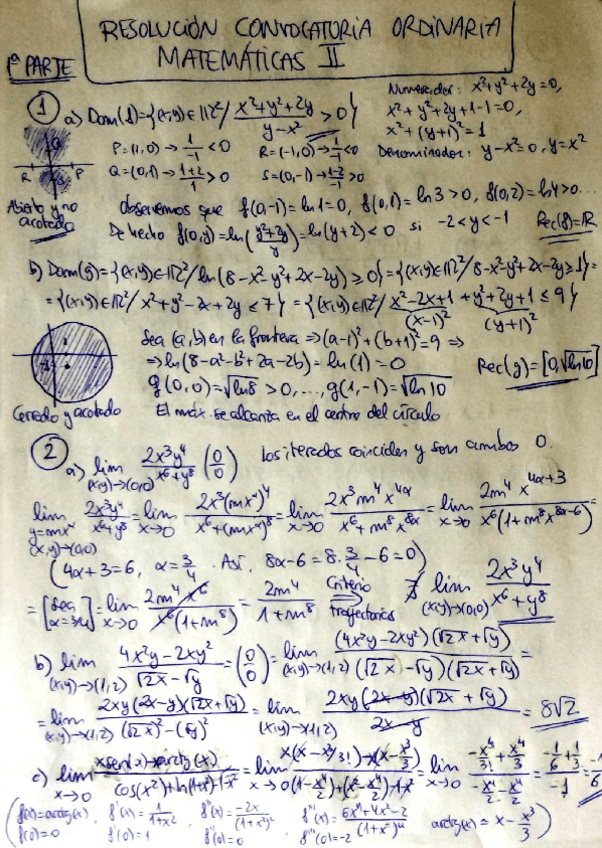 RESOLUCIÓN CONVOCATORIA ORDINARIA
MATEMÁTICAS II
1ª PARTE
Numerador: x²+y²+2y=0,
x²+y²+2y+1-1=0,
x²+(y+1)²=1
Denominador: y-x²=0, y=x²
① a) Dom(f)={(x,y)∈ℝ²/ (x²+y²+2y)/(y-x²) >0}
P=(1,0)→1/-1<0 R=(-1,0)→1/-1<0
Q=(0,1)→(1+2)/1>0 S=(0,-1)→(1-2)/-1>0
R P
Abierto y no acotado
Observemos que f(0,-1)=ln1=0, f(0,1)=ln3>0, f(0,2)=ln4>0...
De hecho f(0,y)=ln((y²+2y)/y)=ln(y+2)<0 si -2<y<-1 Rec(f)=ℝ
b) Dom(g)={(x,y)∈ℝ²/ln(8-x²-y²+2x-2y)≥0}={(x,y)∈ℝ²/8-x²-y²+2x-2y≥1}=
={(x,y)∈ℝ²/x²+y²-2x+2y≤7}={(x,y)∈ℝ²/x²-2x+1+y²+2y+1≤9}
(x-1)² (y+1)²
Sea (a,b) en la frontera ⇒(a-1)²+(b+1)²=9 ⇒
⇒ln(8-a²-b²+2a-2b)=ln(1)=0
g(0,0)=√ln8>0,...,g(1,-1)=√ln10 Rec(g)=[0,√ln10]
Cerrado y acotado El máx. se alcanza en el centro del círculo
② a) lim (x,y)→(0,0) 2x³y⁴/(x⁶+y⁸) (0/0) Los iterados coinciden y son ambos 0.
lim y=mx^α (x,y)→(0,0) 2x³y⁴/(x⁶+y⁸)=lim x→0 2x³(mx^α)⁴/(x⁶+(mx^α)⁸)=lim x→0 2x³m⁴x^4α/(x⁶+m⁸x^8α)=lim x→0 2m⁴x^(4α+3)/(x⁶(1+m⁸x^(8α-6)))=
(4α+3=6, α=3/4. Así, 8α-6=8·3/4-6=0)
=[Sea α=3/4]=lim x→0 2m⁴x⁶/(x⁶(1+m⁸))=2m⁴/(1+m⁸) ⇒ Criterio Trayectorias ∄ lim (x,y)→(0,0) 2x³y⁴/(x⁶+y⁸)
b) lim (x,y)→(1,2) (4x²y-2xy²)/(√2x-√y)=(0/0)=lim (x,y)→(1,2) (4x²y-2xy²)(√2x+√y)/((√2x-√y)(√2x+√y))=
=lim (x,y)→(1,2) 2xy(2x-y)(√2x+√y)/((√2x)²-(√y)²)=lim (x,y)→(1,2) 2xy(2x-y)(√2x+√y)/(2x-y)=8√2
c) lim x→0 (xsen(x)-xarctg(x))/(cos(x²)+ln(1+x²)-1-x²)=lim x→0 (x(x-x³/3!)-x(x-x³/3))/((1-x⁴/2)+(x²-x⁴/2)-1-x²)=lim x→0 (-x⁴/3!+x⁴/3)/(-x⁴/2-x⁴/2)=(-1/6+1/3)/-1=-1/6
(f(x)=arctg(x), f'(x)=1/(1+x²), f''(x)=-2x/(1+x²)², f'''(x)=(6x⁴+4x²-2)/(1+x²)⁴ arctg(x)≈x-x³/3)
f(0)=0 f'(0)=1 f''(0)=0 f'''(0)=-2